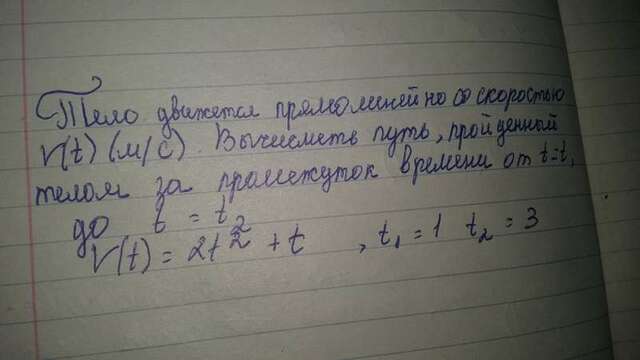 Тело движется прямолинейно со скоростью
V(t) (м/с). Вычислить путь, пройденный
телом за промежуток времени от t=t₁
до t = t₂
V(t) = 2t² + t , t₁ = 1 t₂ = 3